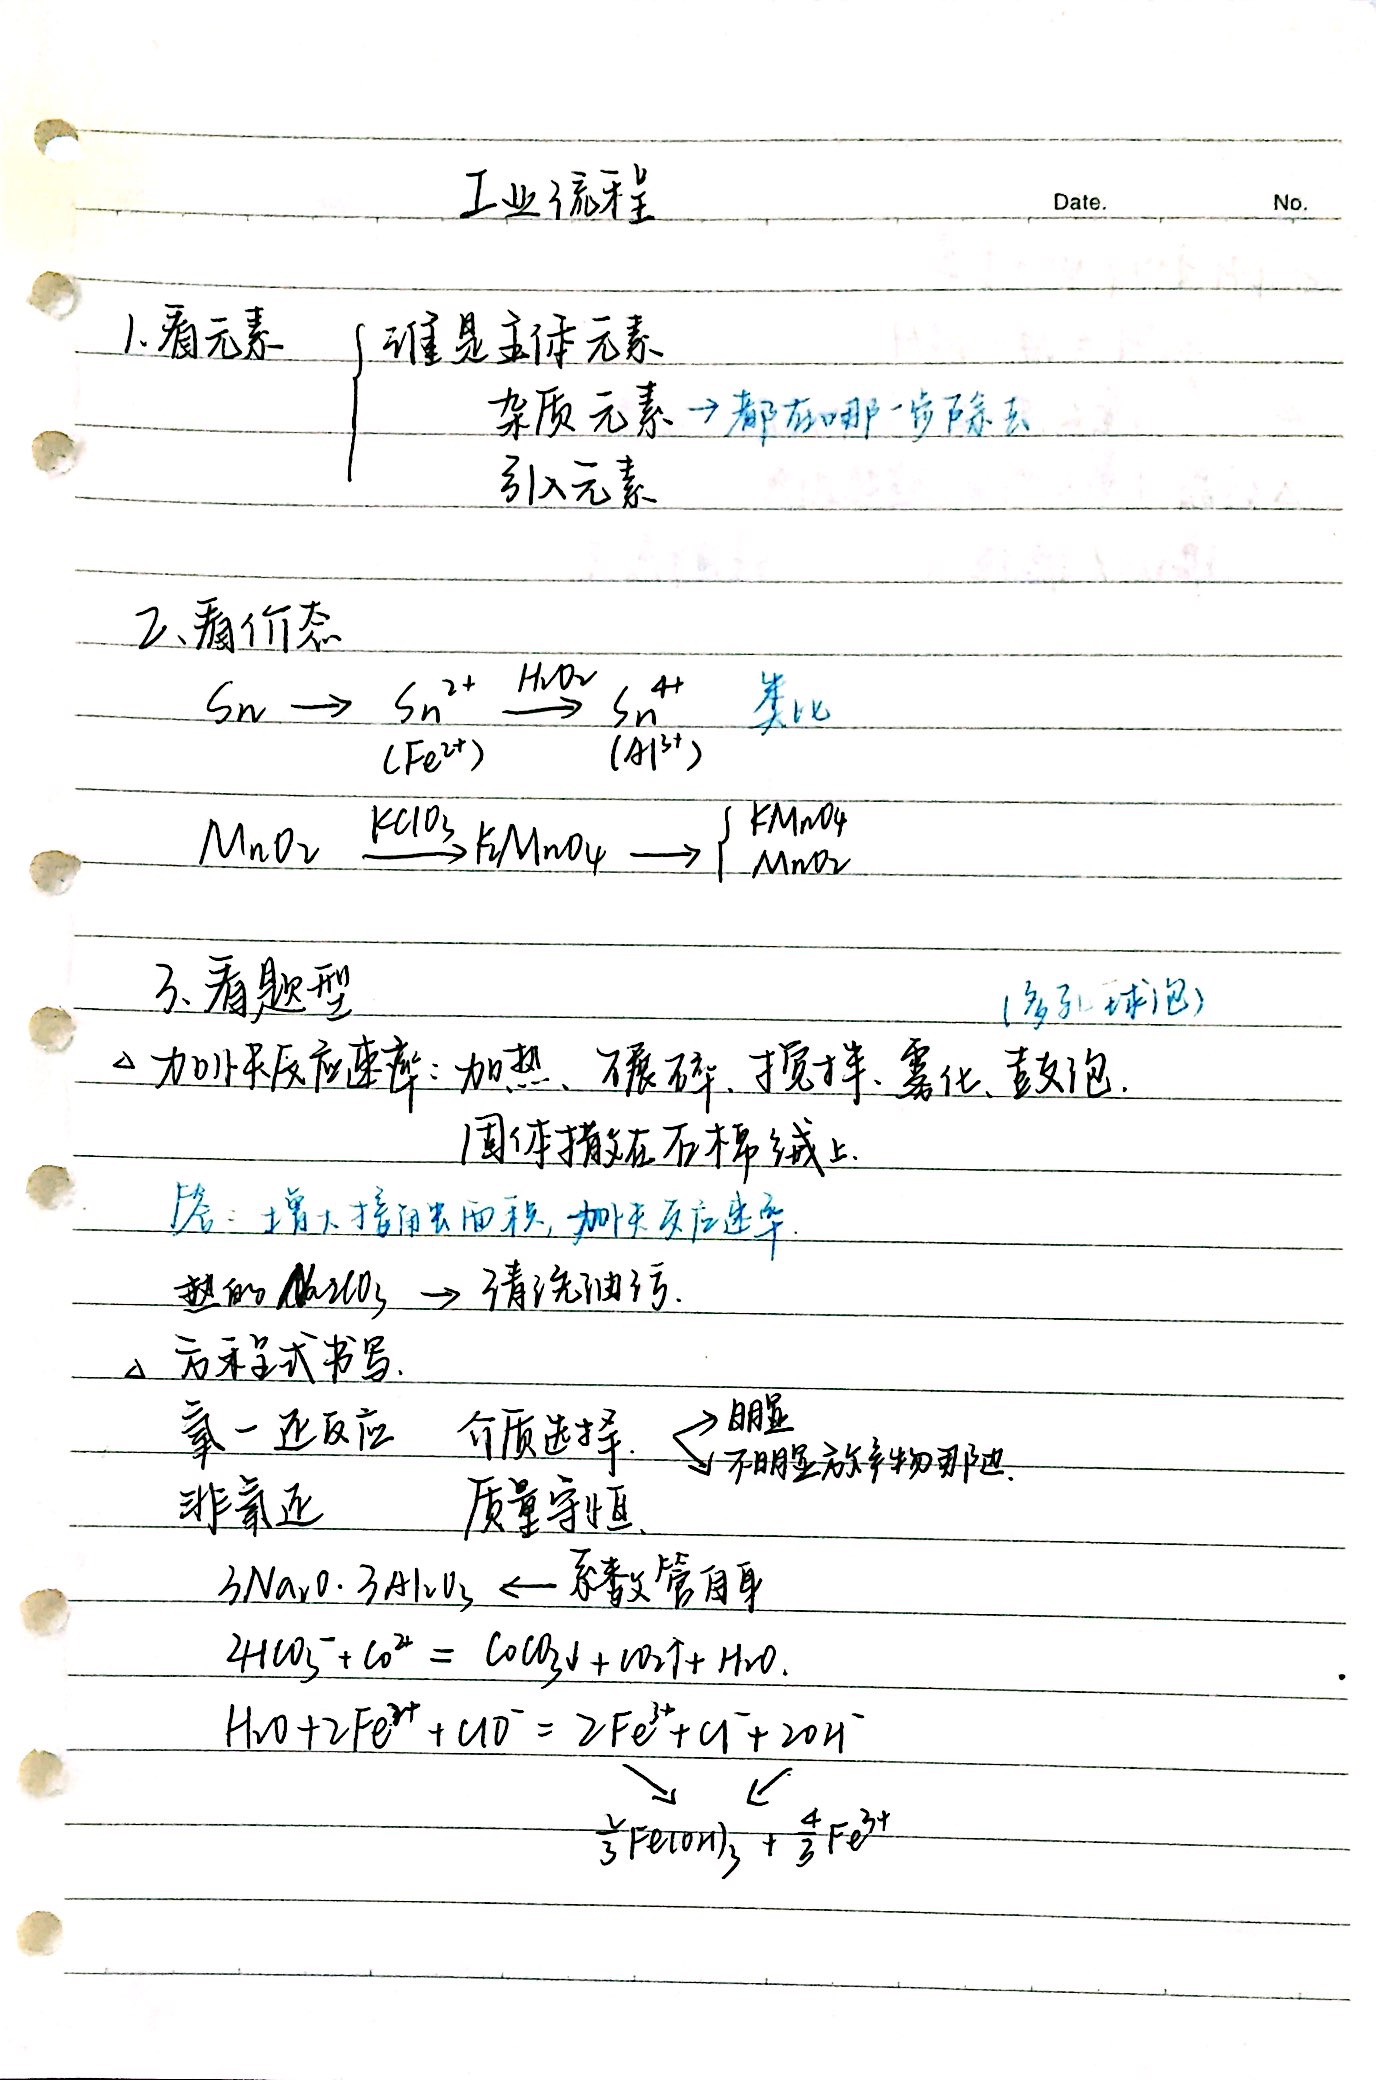 工业流程
Date. No.
1.看元素 { 谁是主体元素
杂质元素 → 都在哪一步除去
引入元素
2、看价态
Sn → Sn²⁺ —H₂O₂→ Sn⁴⁺ 类比
(Fe²⁺) (Al³⁺)
MnO₂ —KClO₃→ K₂MnO₄ → { KMnO₄
MnO₂
3、看题型 (多孔球泡)
△ 加快反应速率: 加热、碾碎、搅拌、雾化、鼓泡.
固体撒在石棉绒上.
答: 增大接触面积, 加快反应速率.
热的 Na₂CO₃ → 清洗油污.
△ 方程式书写.
氧—还反应 介质选择. → 明显
→ 不明显放产物那边.
非氧还 质量守恒.
3Na₂O·3Al₂O₃ ← 系数管自身
2HCO₃⁻ + Co²⁺ = CoCO₃↓ + CO₂↑ + H₂O.
H₂O + 2Fe²⁺ + ClO⁻ = 2Fe³⁺ + Cl⁻ + 2OH⁻
↘ ↙
⅔Fe(OH)₃ + 4/3 Fe³⁺